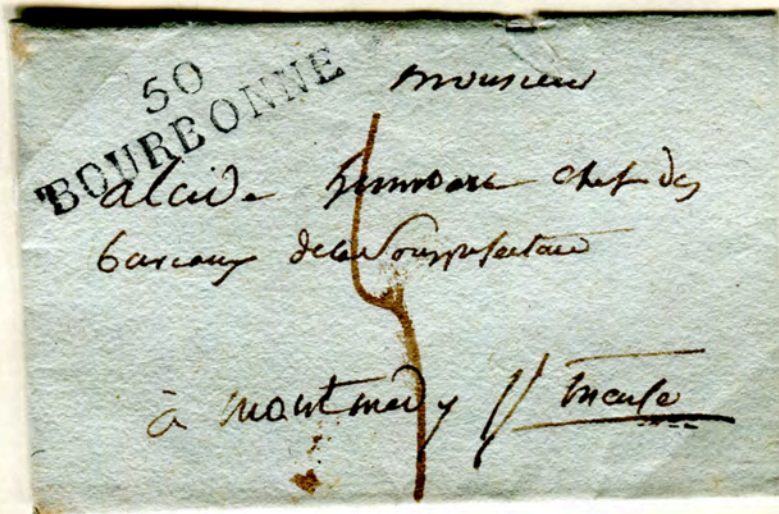 50
BOURBONNE
Monsieur
alcide chef des
bureaux de la Sousprefecture
à Montmedy // Meuse